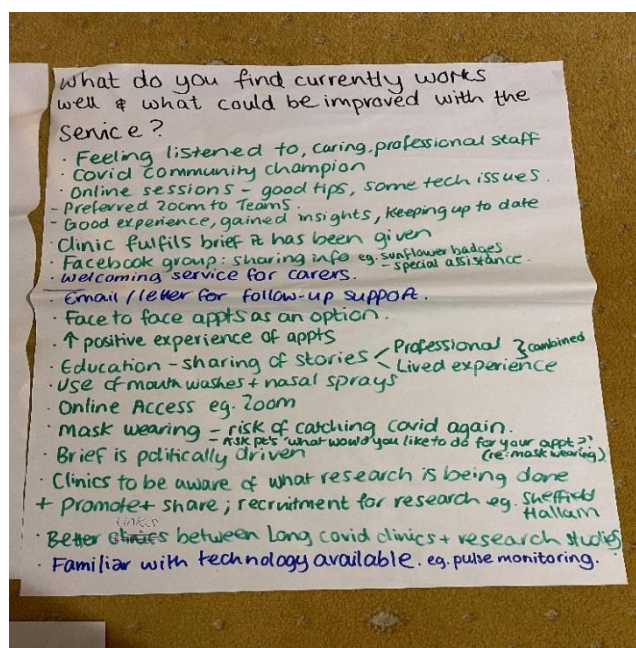 What do you find currently works
well & what could be improved with the
service?
· Feeling listened to, caring, professional staff
· Covid community champion
· Online sessions – good tips, some tech issues.
- Preferred Zoom to Teams.
- Good experience, gained insights, keeping up to date
· Clinic fulfils brief it has been given
· Facebook group: sharing info eg. sunflower badges
– special assistance.
· Welcoming service for carers.
· Email / letter for follow-up support.
· Face to face appts as an option.
· ↑ positive experience of appts
· Education – sharing of stories < Professional } combined
Lived experience
· Use of mouth washes + nasal sprays
· Online Access eg. Zoom
· Mask wearing – risk of catching covid again.
– Ask pt's 'what would you like to do for your appt?'
(re: mask wearing)
· Brief is politically driven
· Clinics to be aware of what research is being done
+ promote + share ; recruitment for research eg. Sheffield
Hallam
· Better links between Long covid clinics + research studies
· Familiar with technology available. eg. pulse monitoring.